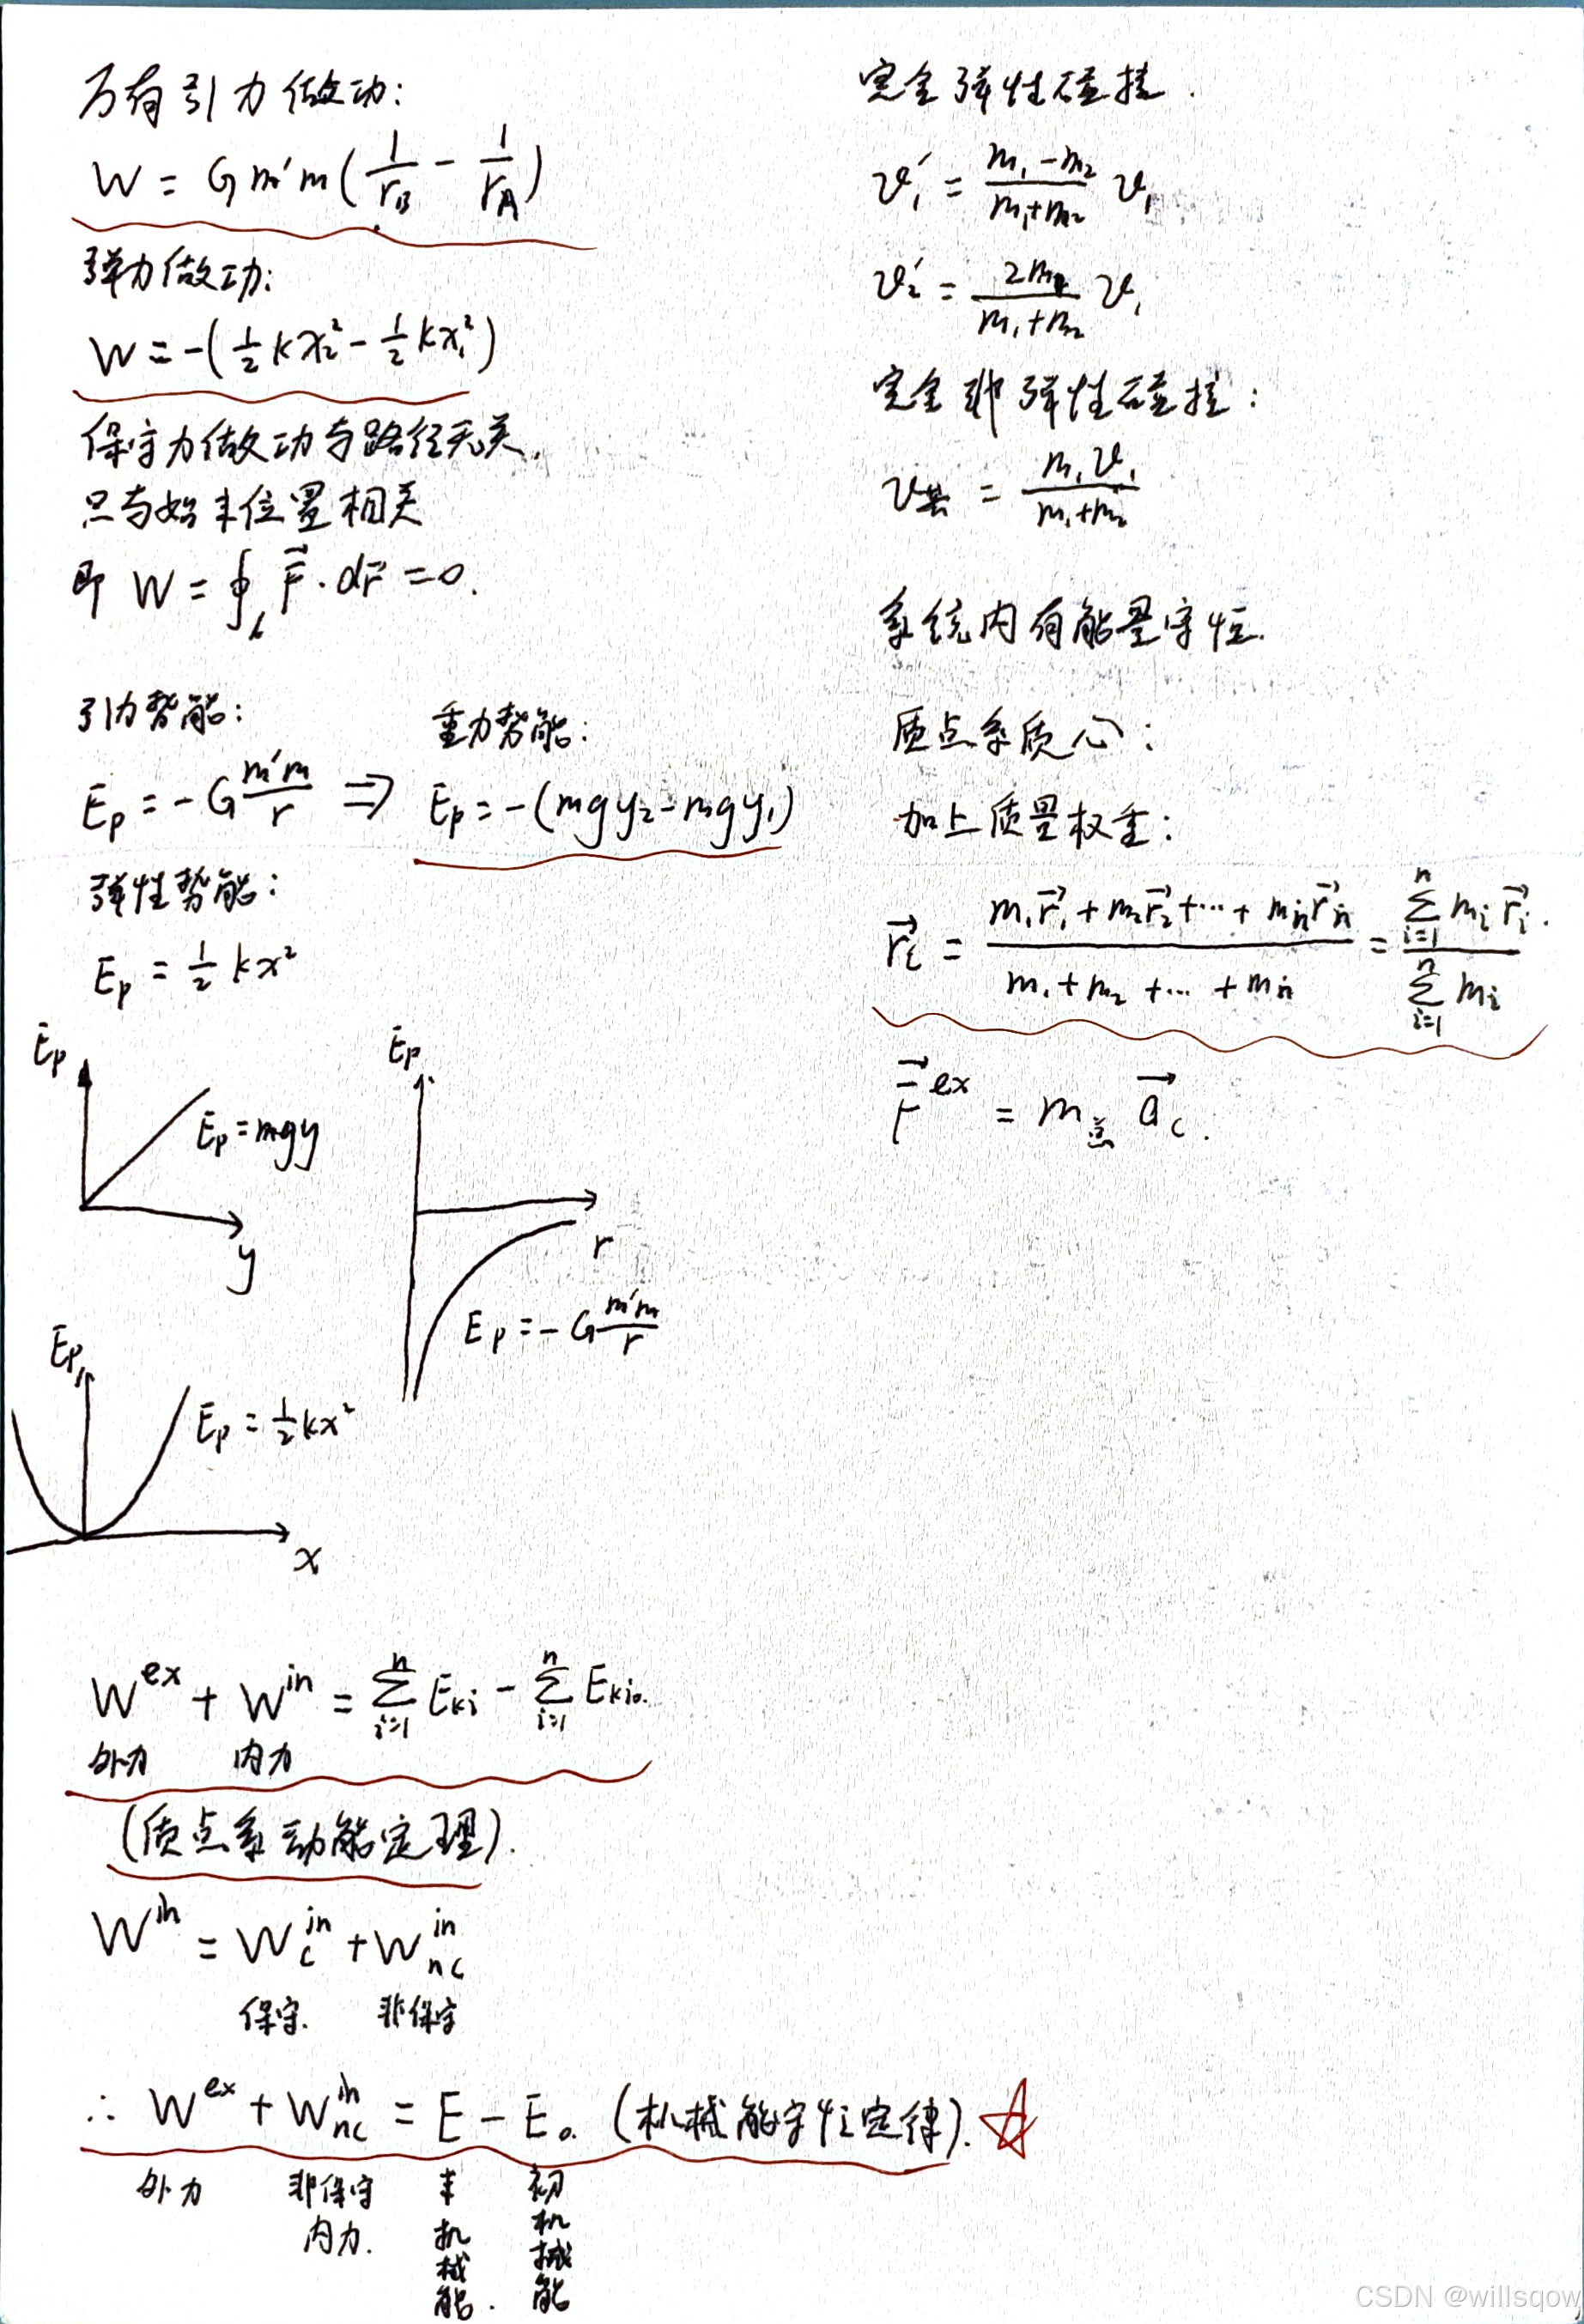 万有引力做功:
W = G m'm (1/r_B - 1/r_A)
弹力做功:
W = -(1/2 kx₂² - 1/2 kx₁²)
保守力做功与路径无关,
只与始末位置相关
即 W = ∮_L F⃗ · dr⃗ = 0.
引力势能:
E_p = -G m'm/r ⇒
重力势能:
E_p = -(mgy₂ - mgy₁)
弹性势能:
E_p = 1/2 kx²
E_p
E_p = mgy
y
E_p
r
E_p = -G m'm/r
E_p
E_p = 1/2 kx²
x
W^ex + W^in = Σ_{i=1}^n E_ki - Σ_{i=1}^n E_ki₀.
外力 内力
(质点系动能定理).
W^in = W_c^in + W_nc^in
保守. 非保守
∴ W^ex + W_nc^in = E - E₀. (机械能守恒定律).
外力 非保守内力. 末机械能. 初机械能
完全弹性碰撞.
v₁' = (m₁ - m₂)/(m₁ + m₂) v₁
v₂' = 2m₁/(m₁ + m₂) v₁
完全非弹性碰撞:
v共 = m₁v₁/(m₁ + m₂)
系统内有能量守恒.
质点系质心:
加上质量权重:
r⃗_c = (m₁r⃗₁ + m₂r⃗₂ + ⋯ + m_n r⃗_n)/(m₁ + m₂ + ⋯ + m_n) = Σ_{i=1}^n m_i r⃗_i / Σ_{i=1}^n m_i.
F⃗^ex = m总 a⃗_c.
CSDN @willsqow